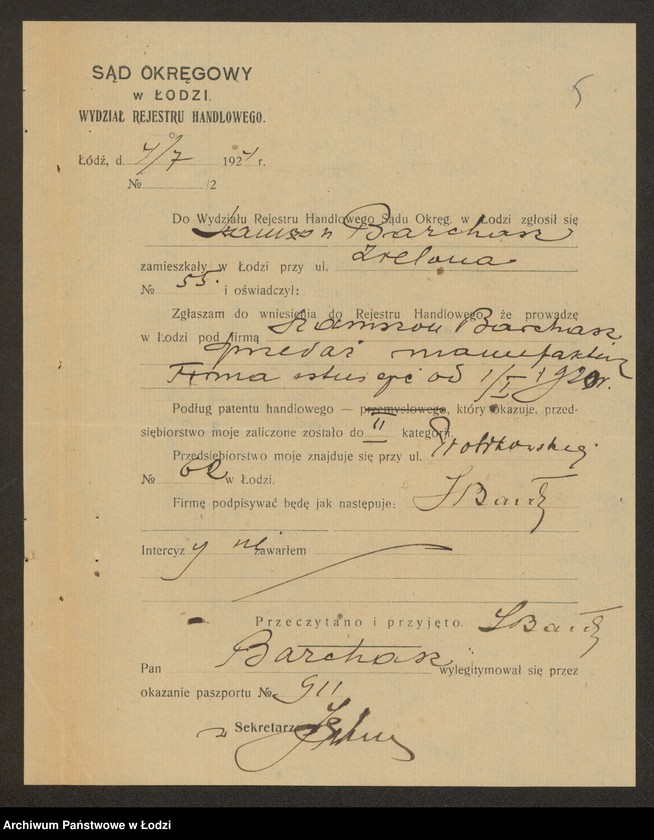 5
SĄD OKRĘGOWY
w ŁODZI.
WYDZIAŁ REJESTRU HANDLOWEGO.
Łódź, d. 4/7 1921 r.
№ /2
Do Wydziału Rejestru Handlowego Sądu Okręg. w Łodzi zgłosił się
Szamszon Barchasz
zamieszkały w Łodzi przy ul. Zielona
№ 55. i oświadczył:
Zgłaszam do wniesienia do Rejestru Handlowego, że prowadzę
w Łodzi pod firmą Szamszon Barchasz
sprzedaż manufaktury
Firma istnieje od 1/I 1920 r.
Podług patentu handlowego — przemysłowego, który okazuje, przed-
siębiorstwo moje zaliczone zostało do II kategorji.
Przedsiębiorstwo moje znajduje się przy ul. Piotrkowskiej
№ 62 w Łodzi.
Firmę podpisywać będę jak następuje:
Intercyzy nie zawarłem
Przeczytano i przyjęto.
Pan Barchasz wylegitymował się przez
okazanie paszportu № 911
Sekretarz
Archiwum Państwowe w Łodzi